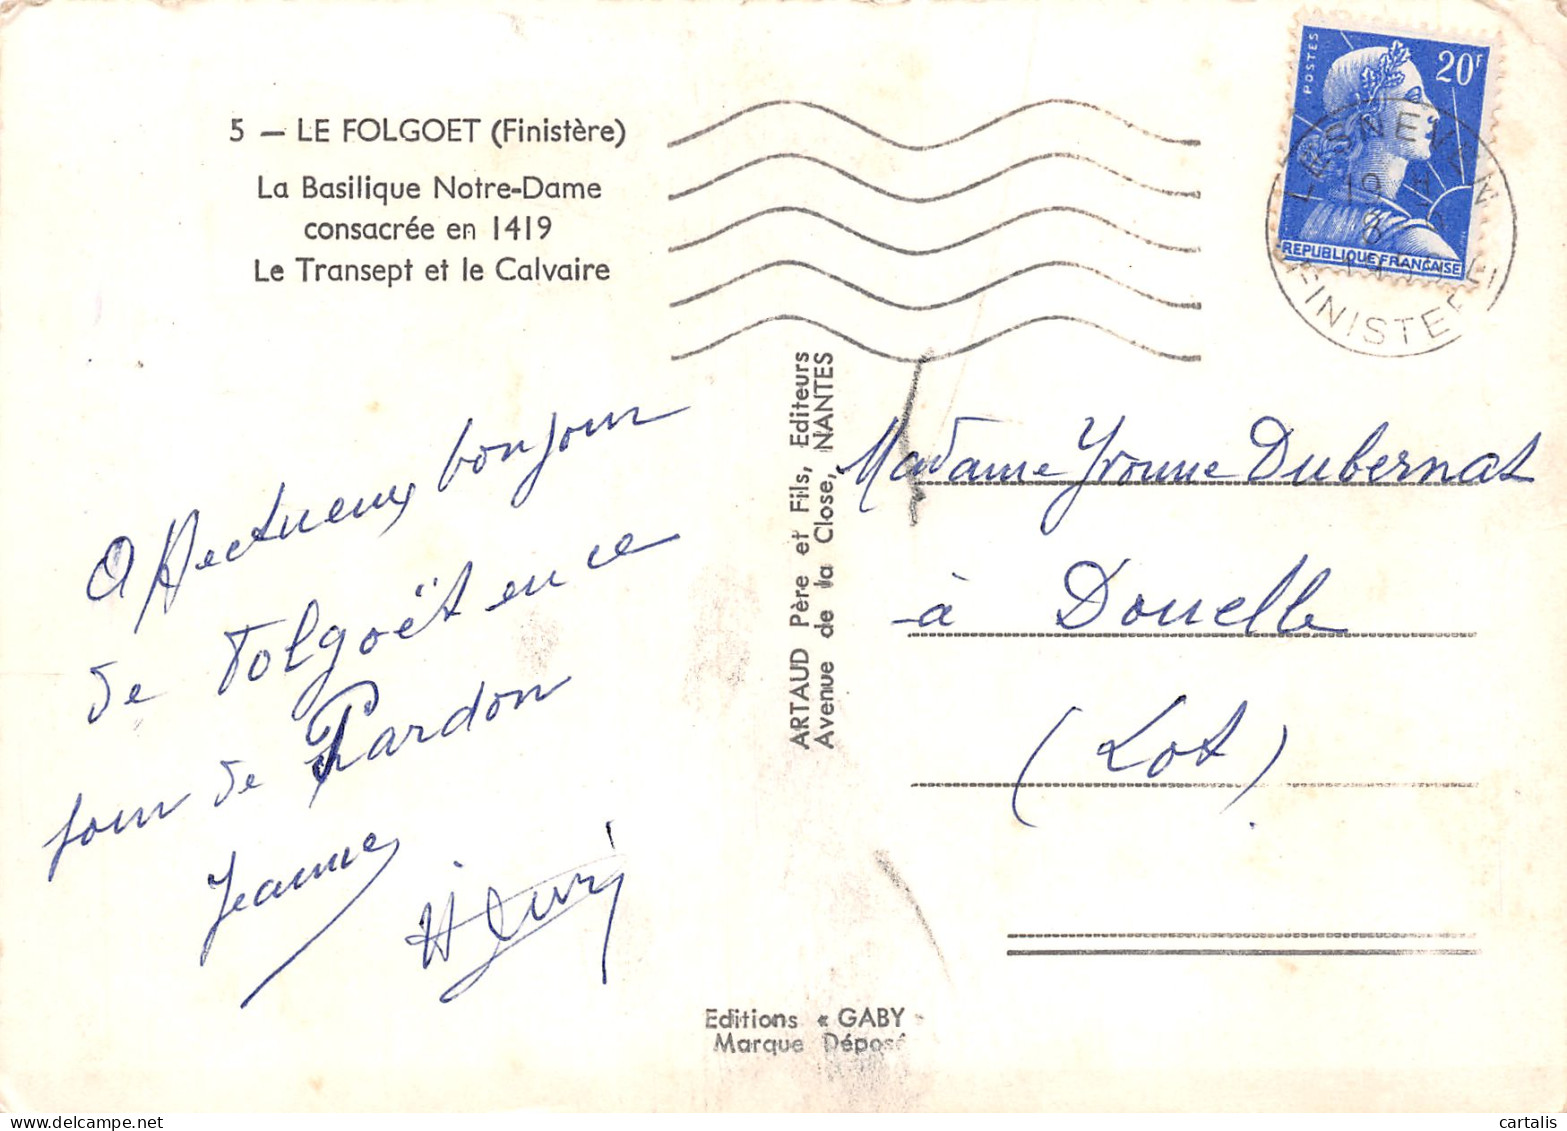 5 — LE FOLGOET (Finistère)
La Basilique Notre-Dame
consacrée en 1419
Le Transept et le Calvaire
POSTES
20F
REPUBLIQUE FRANÇAISE
LESNEVEN
19
8
FINISTERE
Affectueux bonjour
de Folgoët en ce
jour de Pardon
Jeanne
Henri
ARTAUD Père et Fils, Editeurs
Avenue de la Close, NANTES
Madame Yvonne Dubernat
à Douelle
(Lot)
Editions « GABY
Marque Déposé
cartalis